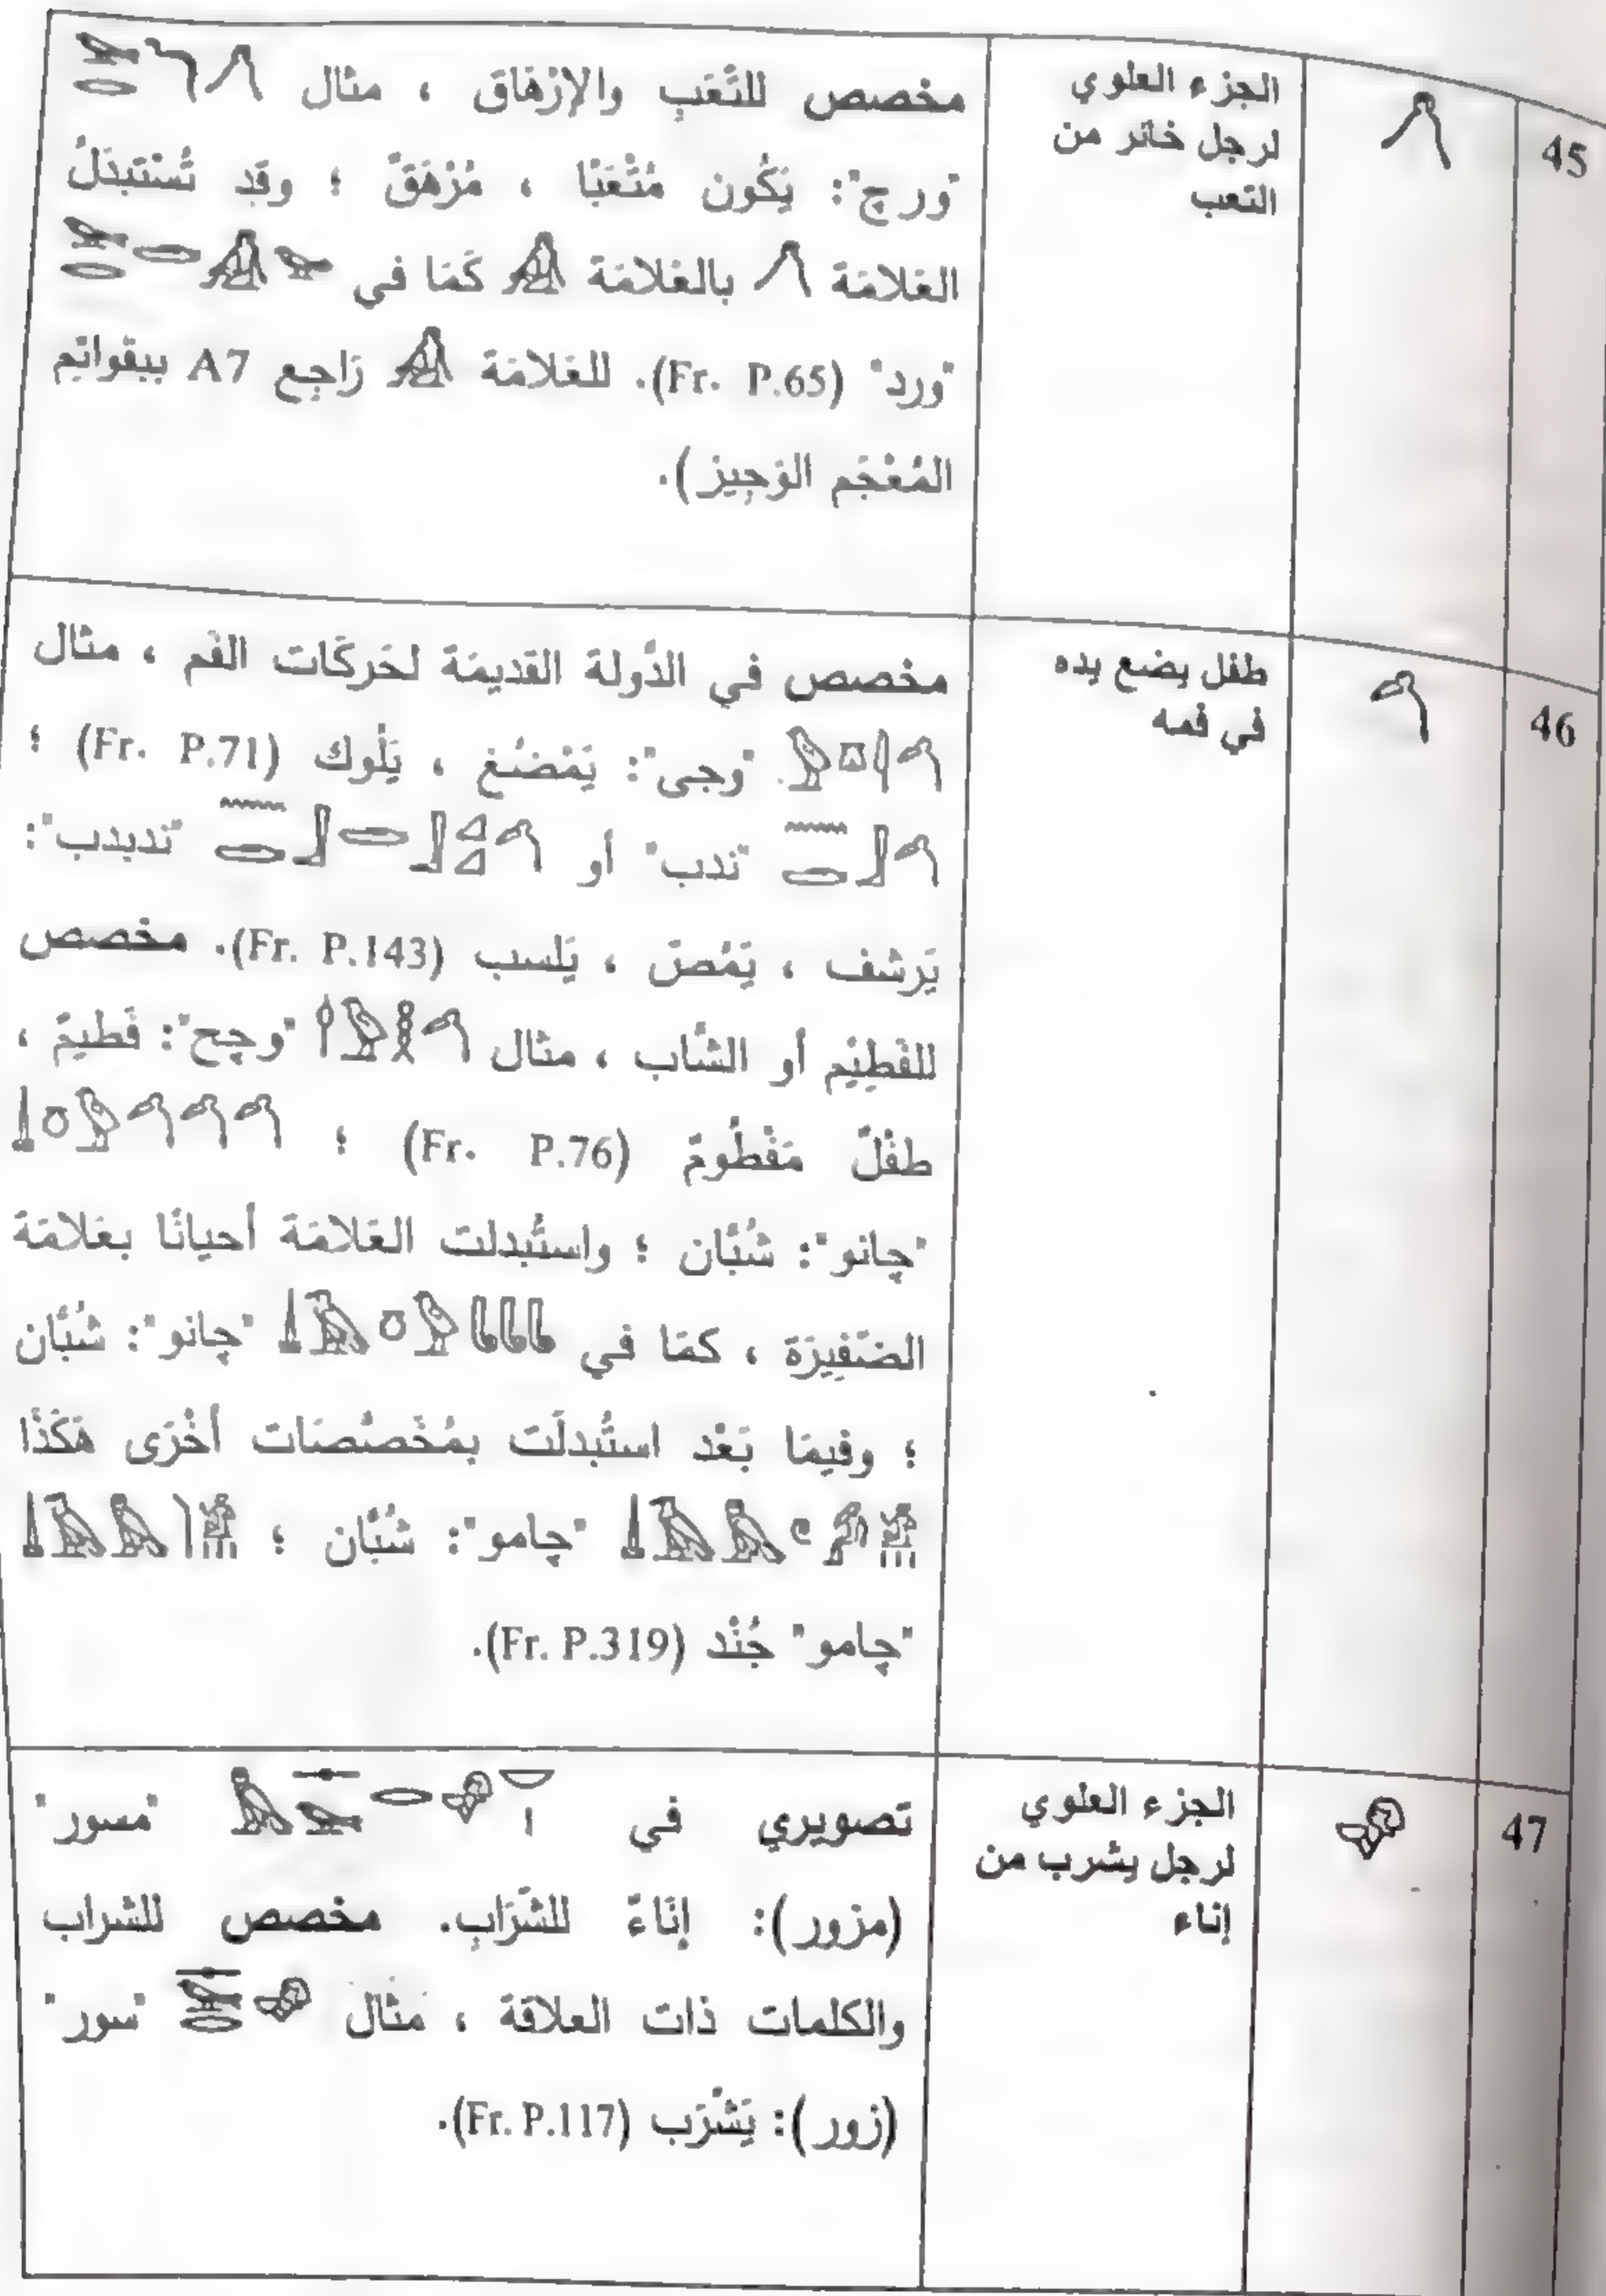 45
الجزء العلوي
لرجل خائر من
التعب
مخصص للتَّعَبِ والإِرْهَاق ، مثال
"ورچ": يَكُون مُتْعَبًا ، مُرْهَقٌ ؛ وقَد تُسْتَبدَلُ
العَلامَة بالعَلامَة كَمَا في
"ورد" (Fr. P.65). للعَلامَة رَاجِع A7 ببقوائِم
المُعْجَم الوَجِيز).
46
طفل يضع يده
في فمه
مخصص في الدَّولة القَديمَة لحَركَات الفَم ، مثال
"وجى": يَمْضُغ ، يَلُوك (Fr. P.71) ؛
"ندب" أو "ندبدب":
يَرشف ، يَمُصّ ، يَلسب (Fr. P.143). مخصص
للفَطِيْم أو الشَّاب ، مثال "وچح": فَطيمٌ ،
طفْلٌ مَفْطُومٌ (Fr. P.76) ؛
"چانو": شُبَّان ؛ واستُبدلت العَلامَة أحيانًا بعَلامَة
الضَّفِيرَة ، كمَا في "چانو": شُبَّان
؛ وفيمَا بَعْد استُبدلَت بمُخَصَّصَات أخْرَى هَكَذَا
"چامو": شُبَّان ؛
"چامو" جُنْد (Fr. P.319).
47
الجزء العلوي
لرجل يشرب من
إناء
تصويري في "مسور"
(مزور): إنَاءً للشَّرَابِ. مخصص للشراب
والكلمات ذات العلاقة ، مثال "سور"
(زور): يَشْرَب (Fr. P.117).